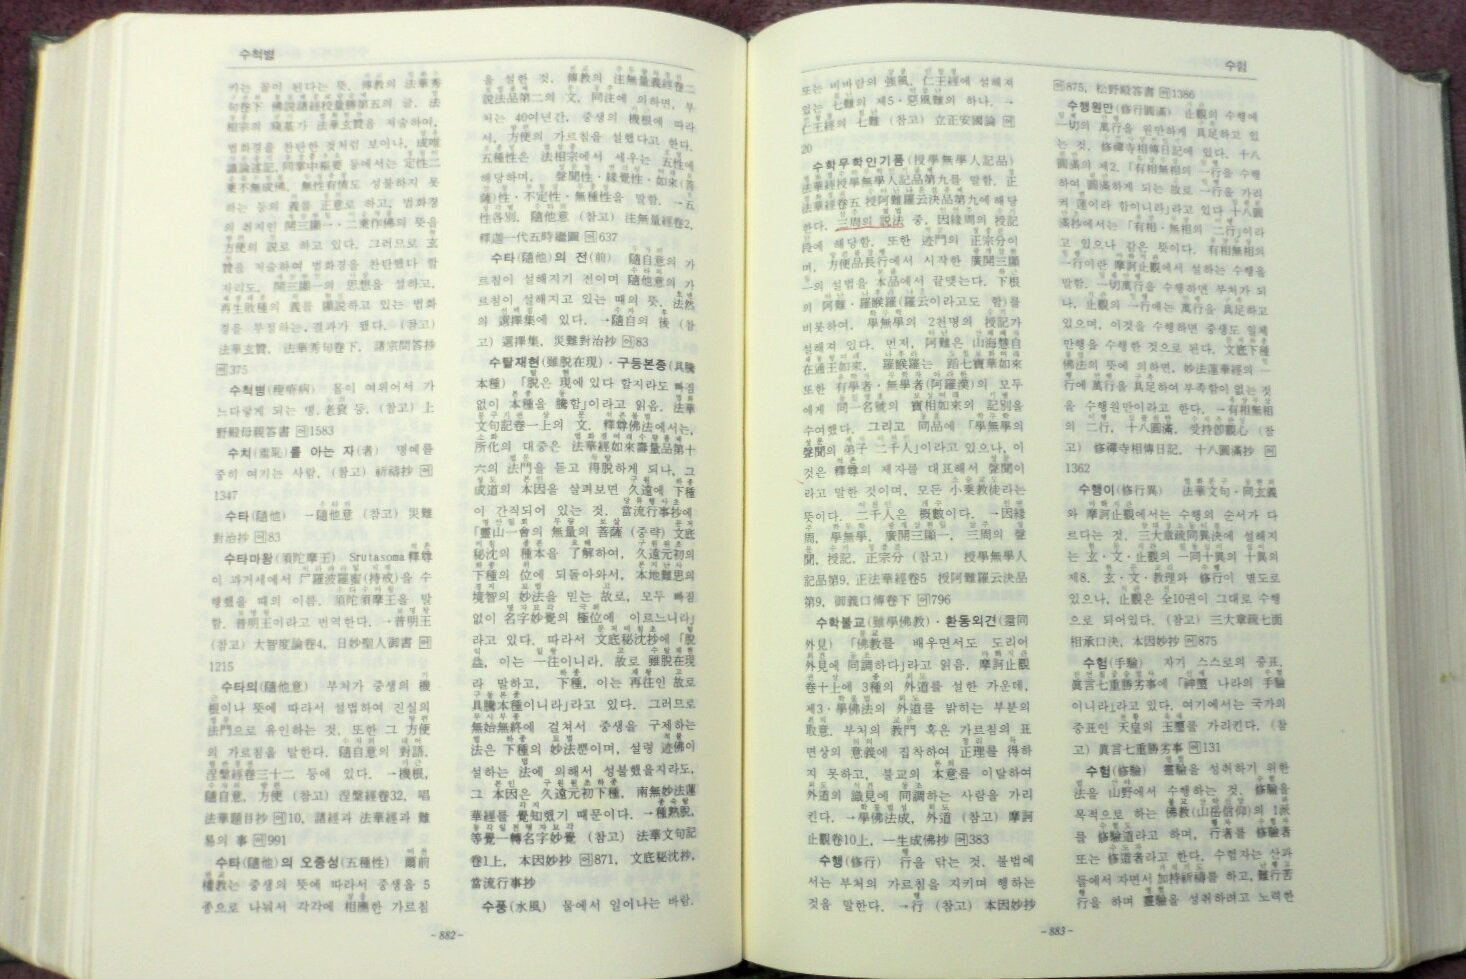 수척병
키는 꼴이 된다는 뜻. 傳敎의 法華秀
句卷下 佛說諸經校量勝第五의 글. 法
相宗의 慈基가 法華玄贊을 저술하여,
법화경을 찬탄한 것처럼 보이나, 成唯
識論述記, 同掌中樞要 등에서는 定性二
乘不無成佛, 無性有情도 성불하지 못
하는 등의 義를 正意로 하고, 법화경
의 취지인 開三顯一·二乘作佛의 뜻을
方便의 說로 하고 있다. 그러므로 玄
贊을 저술하여 법화경을 찬탄했다 할
지라도, 開三顯一의 思想을 설하고,
再生敗種의 義를 顯說하고 있는 법화
경을 부정하는 결과가 됐다. (참고)
法華玄贊, 法華秀句卷下, 諸宗問答抄
375
수척병(瘦瘠病) 몸이 여위어서 가
느다랗게 되는 병. 老衰 등. (참고) 上
野殿母親答書 1583
수치(羞恥)를 아는 자(者) 명예를
중히 여기는 사람. (참고) 祈禱抄
1347
수타(隨他) →隨他意 (참고) 災難
對治抄 83
수타마왕(須陀摩王) Srutasoma 釋尊
이 과거세에서 尸羅波羅蜜(持戒)을 수
행했을 때의 이름. 須陀須摩王을 말
함. 普明王이라고 번역한다. →普明王
(참고) 大智度論卷4, 日妙聖人御書
1215
수타의(隨他意) 부처가 중생의 機
根이나 뜻에 따라서 설법하여 진실의
法門으로 유인하는 것. 또한 그 方便
의 가르침을 말한다. 隨自意의 對語.
涅槃經卷三十二 등에 있다. →機根,
隨自意, 方便 (참고) 涅槃經卷32, 唱
法華題目抄 10, 諸經과 法華經과 難
易의 事 991
수타(隨他)의 오종성(五種性) 爾前
權敎는 중생의 뜻에 따라서 중생을 5
종으로 나눠서 각각에 相應한 가르침
을 설한 것. 傳敎의 注無量義經卷二
說法品第二의 文. 同注에 의하면, 부
처는 40여년간, 중생의 機根에 따라
서, 方便의 가르침을 설했다고 한다.
五種性은 法相宗에서 세우는 五性에
해당하며, 聲聞性·緣覺性·如來(菩
薩)性·不定性·無種性을 말함. →五
性各別, 隨他意 (참고) 注無量經卷2,
釋迦一代五時繼圖 637
수타(隨他)의 전(前) 隨自意의 가
르침이 설해지기 전이며 隨他意의 가
르침이 설해지고 있는 때의 뜻. 法然
의 選擇集에 있다. →隨自의 後 (참
고) 選擇集, 災難對治抄 83
수탈재현(雖脫在現)·구등본종(具騰
本種) 「脫은 現에 있다 할지라도 빠짐
없이 本種을 騰함」이라고 읽음. 法華
文句記卷一上의 文. 釋尊佛法에서는,
所化의 대중은 法華經如來壽量品第十
六의 法門을 듣고 得脫하게 되나, 그
成道의 本因을 살펴보면 久遠에 下種
이 간직되어 있는 것. 當流行事抄에
「靈山一會의 無量의 菩薩 (중략) 文底
秘沈의 種本을 了解하여, 久遠元初의
下種의 位에 되돌아와서, 本地難思의
境智의 妙法을 믿는 故로, 모두 빠짐
없이 名字妙覺의 極位에 이르느니라」
라고 있다. 따라서 文底秘沈抄에 「脫
益, 이는 一往이니라, 故로 雖脫在現
라 말하고, 下種, 이는 再往인 故로
具騰本種이니라」라고 있다. 그러므로
無始無終에 걸쳐서 중생을 구제하는
法은 下種의 妙法뿐이며, 설령 迹佛이
설하는 法에 의해서 성불했을지라도,
그 本因은 久遠元初下種, 南無妙法蓮
華經를 覺知했기 때문이다. →種熟脫,
等覺一轉名字妙覺 (참고) 法華文句記
卷1上, 本因妙抄 871, 文底秘沈抄,
當流行事抄
수풍(水風) 물에서 일어나는 바람.
-882-
수험
또는 비바람의 強風. 仁王經에 설해져
있는 七難의 제5·惡風難의 하나. →
仁王經의 七難 (참고) 立正安國論
20
수학무학인기품(授學無學人記品)
法華經授學無學人記品第九를 말함. 正
法華經卷五 授阿難羅云決品第九에 해당
한다. 三周의 說法 중, 因緣周의 授記
段에 해당함. 또한 迹門의 正宗分이
며, 方便品長行에서 시작한 廣開三顯
一의 설법을 本品에서 끝맺는다. 下根
의 阿難·羅睺羅(羅云이라고도 함)를
비롯하여, 學無學의 2천명의 授記가
설해져 있다. 먼저, 阿難은 山海慧自
在通王如來, 羅睺羅는 蹈七寶華如來
또한 有學者·無學者(阿羅漢)의 모두
에게 同一名號의 寶相如來의 記別을
수여했다. 그리고 同品에 「學無學의
聲聞의 弟子 二千人」이라고 있으나, 이
것은 釋尊의 제자를 대표해서 聲聞이
라고 말한 것이며, 모든 小乘敎徒라는
뜻이다. 二千人은 槪數이다. →因緣
周, 學無學, 廣開三顯一, 三周의 聲
聞, 授記, 正宗分 (참고) 授學無學人
記品第9, 正法華經卷5 授阿難羅云決品
第9, 御義口傳卷下 796
수학불교(雖學佛敎)·환동외견(還同
外見) 「佛敎를 배우면서도 도리어
外見에 同調하다」라고 읽음. 摩訶止觀
卷十上에 3種의 外道를 설한 가운데,
제3·學佛法의 外道를 밝히는 부분의
取意. 부처의 敎門 혹은 가르침의 표
면상의 意義에 집착하여 正理를 得하
지 못하고, 불교의 本意를 이탈하여
外道의 識見에 同調하는 사람을 가리
킨다. →學佛法成, 外道 (참고) 摩訶
止觀卷10上, 一生成佛抄 383
수행(修行) 行을 닦는 것. 불법에
서는 부처의 가르침을 지키며 행하는
것을 말한다. →行 (참고) 本因妙抄
875, 松野殿答書 1386
수행원만(修行圓滿) 止觀의 수행에
一切의 萬行을 원만하게 具足하고 있
는 것. 修禪寺相傳日記에 있다. 十八
圓滿의 제2. 「有相無相의 一行을 수행
하여 圓滿하게 되는 故로 一行을 가리
켜 蓮이라 함이니라」라고 있다 十八圓
滿抄에서는 「有相·無相의 二行」이라
고 있으나 같은 뜻이다. 有相無相의
一行이란 摩訶止觀에서 설하는 수행을
말함. 一切萬行을 수행하면 부처가 되
나, 止觀의 一行에는 萬行을 具足하고
있으며, 이것을 수행하면 중생도 일체
만행을 수행한 것으로 된다. 文底下種
佛法의 뜻에 의하면, 妙法蓮華經의 一
行에 萬行을 具足하여 부족함이 없는 것
을 수행원만이라고 한다. →有相無相
의 二行, 十八圓滿, 受持卽觀心 (참
고) 修禪寺相傳日記, 十八圓滿抄
1362
수행이(修行異) 法華文句·同玄義
와 摩訶止觀에서는 수행의 순서가 다
르다는 것. 三大章疏同異決에 설해지
는 玄·文·止觀의 一同十異의 十異의
제8. 玄·文·敎理와 修行이 별도로
있으나, 止觀은 全10권이 그대로 수행
으로 되어있다. (참고) 三大章疏七面
相承口決, 本因妙抄 875
수험(手驗) 자기 스스로의 증표.
眞言七重勝劣事에 「神璽 나라의 手驗
이니라」라고 있다. 여기에서는 국가의
증표인 天皇의 玉璽를 가리킨다. (참
고) 眞言七重勝劣事 131
수험(修驗) 靈驗을 성취하기 위한
法을 山野에서 수행하는 것. 修驗을
목적으로 하는 佛敎(山岳信仰)의 1派
를 修驗道라고 하며, 行者를 修驗者
또는 修道者라고 한다. 수험자는 산과
들에서 자면서 加持祈禱를 하고, 難行苦
行을 하며 靈驗을 성취하려고 노력한
-883-